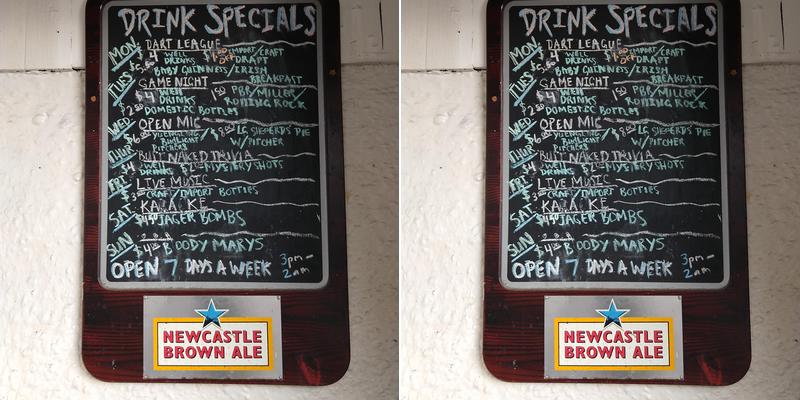 DRINK SPECIALS
MON DART LEAGUE
$4 WELL DRINKS $1.00 OFF IMPORT/CRAFT DRAFT
BABY GUINNETS/IRISH BREAKFAST
TUES GAME NIGHT
$4 WELL DRINKS PBR/MILLER/ ROLLING ROCK
$2.50 DOMESTIC BOTTLES
WED OPEN MIC
$6.00 YUENGLING BUDLIGHT PITCHERS / $8.00 LG SHEPERDS PIE W/PITCHER
THUR BUTT NAKED TRIVIA
$4 WELL DRINKS SHOTS
FRI LIVE MUSIC
$3 CRAFT/IMPORT BOTTLES
SAT KA A KE
JAGER BOMBS
SUN OODY MARYS
OPEN 7 DAYS A WEEK 3pm - 2am
NEWCASTLE
BROWN ALE
DRINK SPECIALS
MON DART LEAGUE
$4 WELL DRINKS $1.00 OFF IMPORT/CRAFT DRAFT
BABY GUINNETS/IRISH BREAKFAST
TUES GAME NIGHT
$4 WELL DRINKS PBR/MILLER/ ROLLING ROCK
$2.50 DOMESTIC BOTTLES
WED OPEN MIC
$6.00 YUENGLING BUDLIGHT PITCHERS / $8.00 LG SHEPERDS PIE W/PITCHER
THUR BUTT NAKED TRIVIA
$4 WELL DRINKS SHOTS
FRI LIVE MUSIC
$3 CRAFT/IMPORT BOTTLES
SAT KA A KE
JAGER BOMBS
SUN OODY MARYS
OPEN 7 DAYS A WEEK 3pm - 2am
NEWCASTLE
BROWN ALE